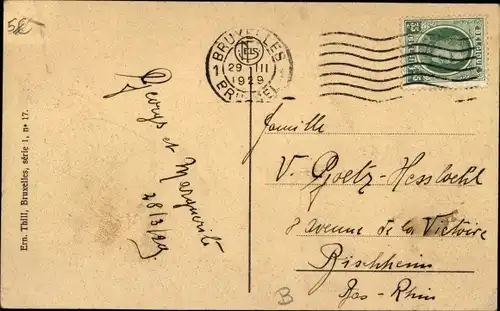 BRUXELLES
1 1
29 III
1929
BRUSSEL
Georges et Marguerite
28/3/29
Ern. Thill, Bruxelles, série 1, n° 17.
Famille
V. Goetz-Hessloehl
8 avenue de la Victoire
Bischheim
Bas-Rhin
B